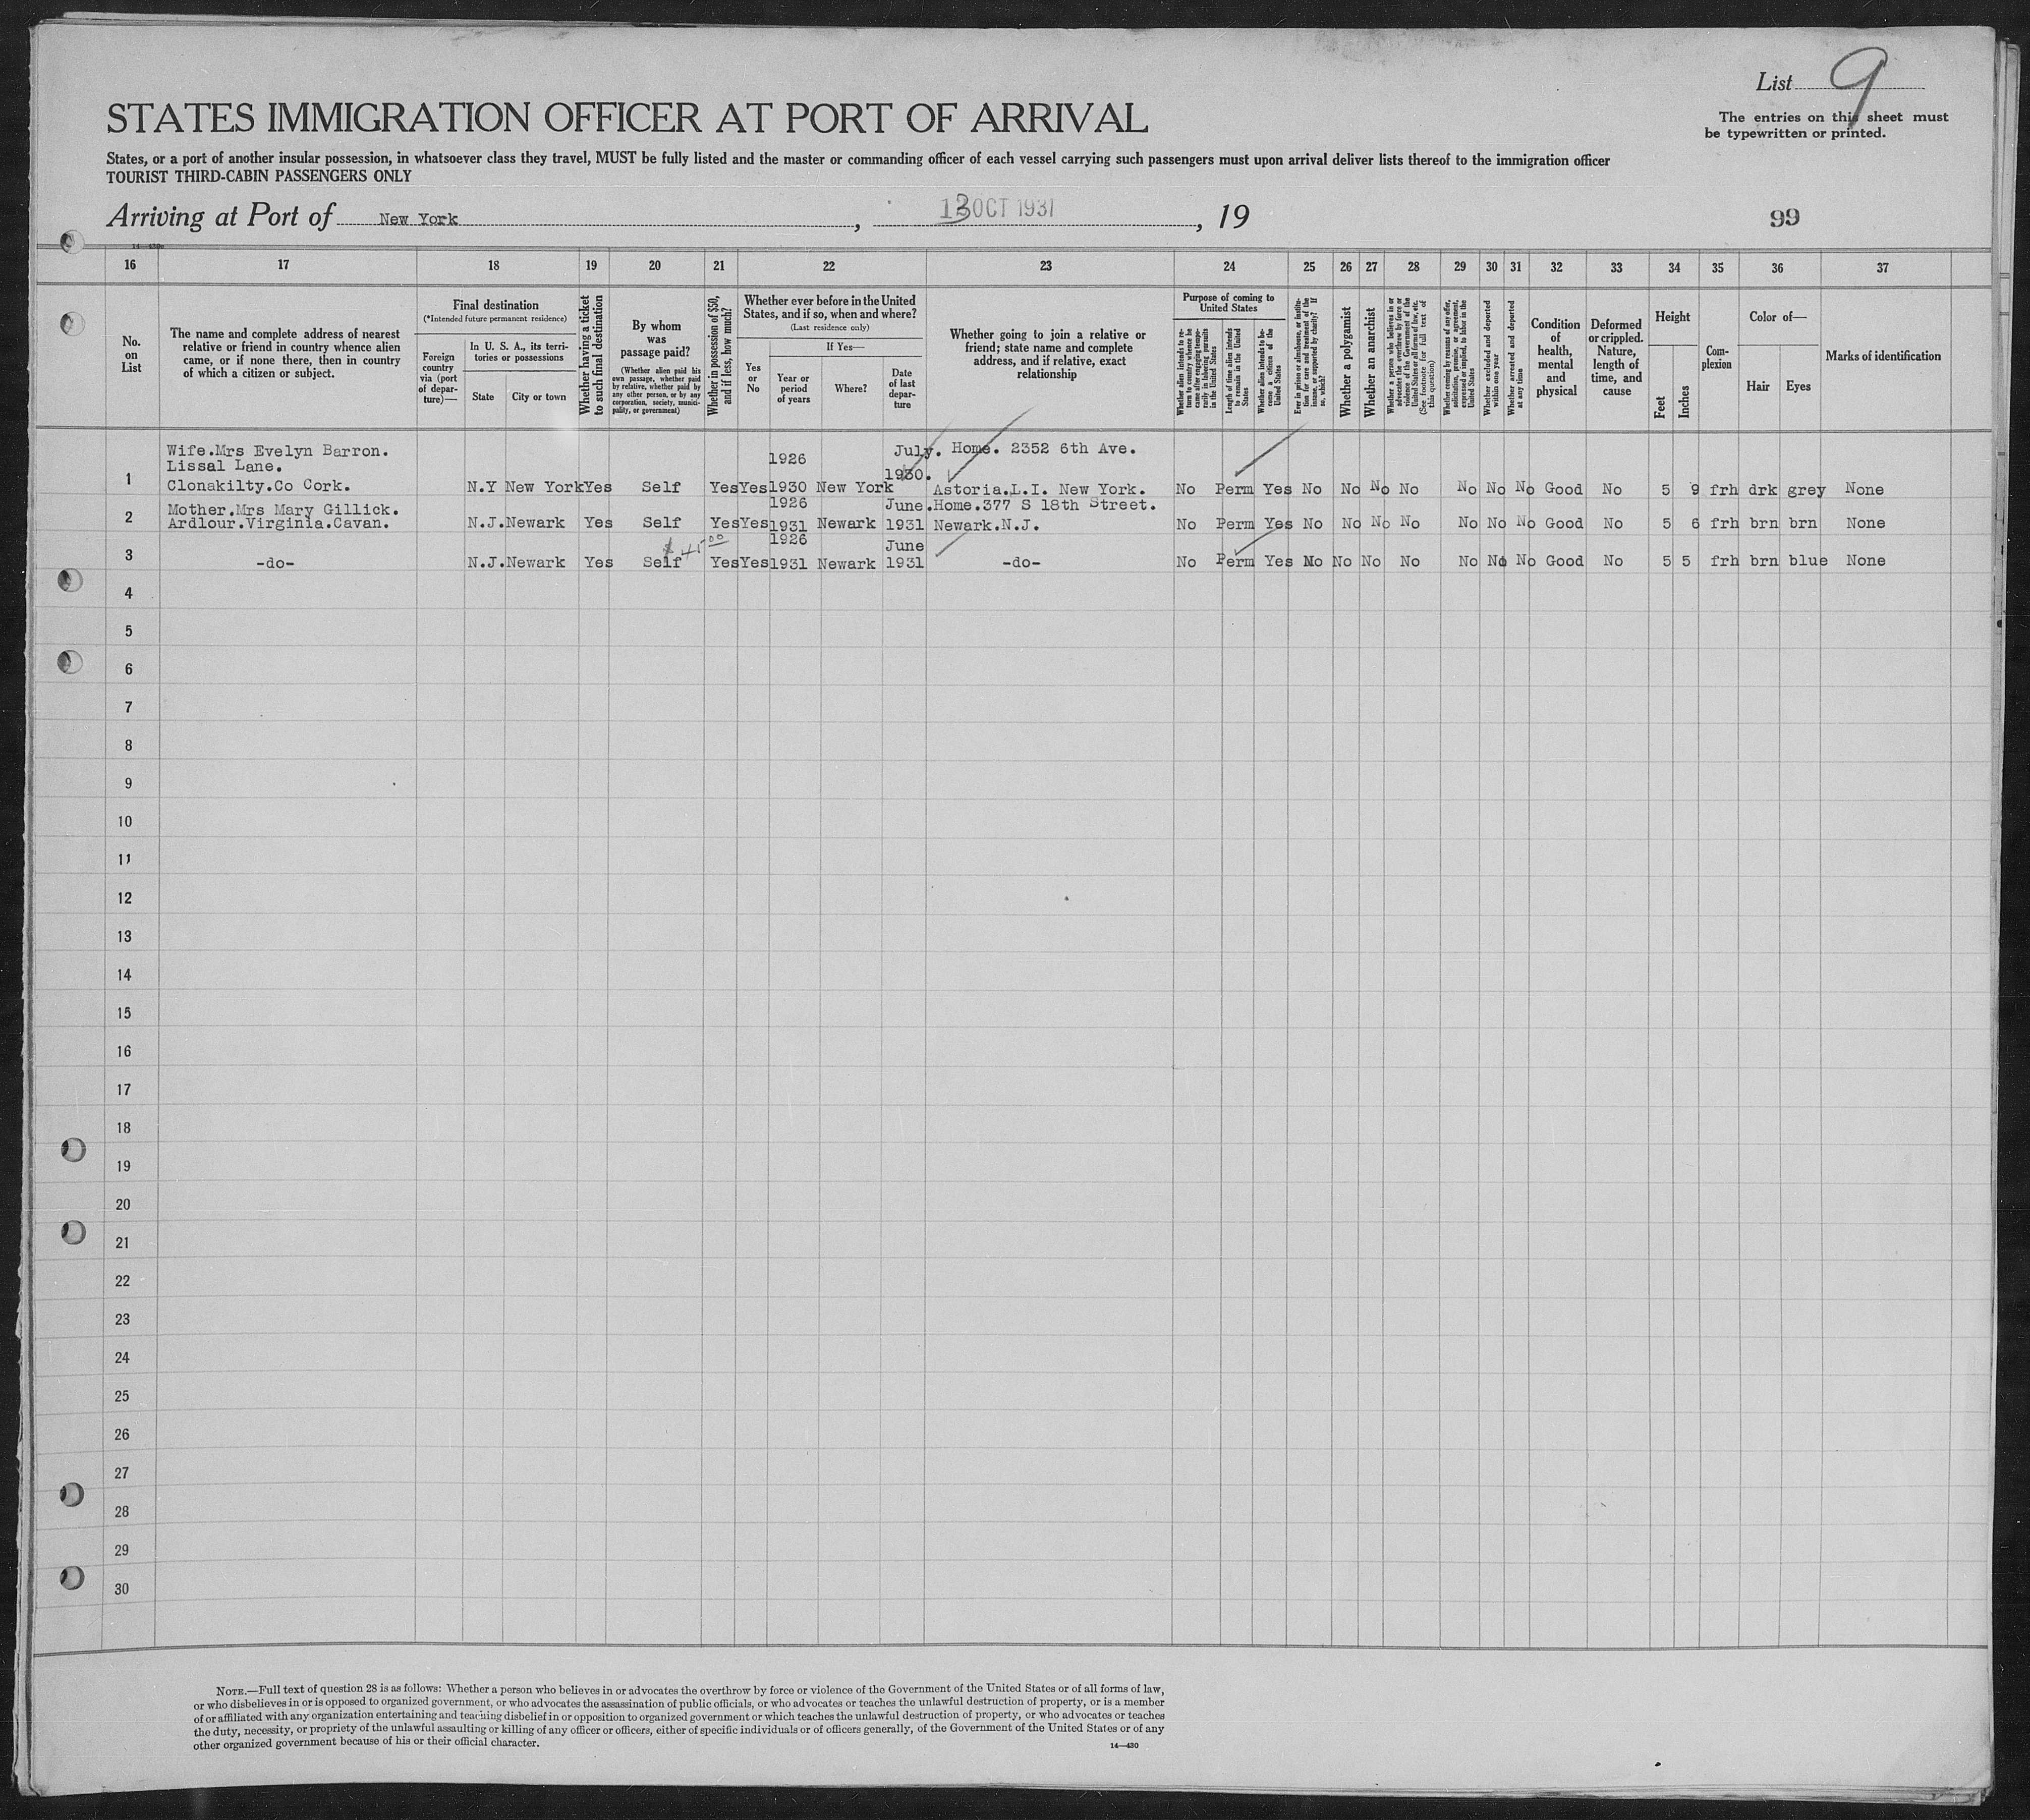 List 9
The entries on this sheet must
be typewritten or printed.
STATES IMMIGRATION OFFICER AT PORT OF ARRIVAL
States, or a port of another insular possession, in whatsoever class they travel, MUST be fully listed and the master or commanding officer of each vessel carrying such passengers must upon arrival deliver lists thereof to the immigration officer
TOURIST THIRD-CABIN PASSENGERS ONLY
Arriving at Port of New York, 13 OCT 1931, 19
99
16 17 18 19 20 21 22 23 24 25 26 27 28 29 30 31 32 33 34 35 36 37
No.
on
List
The name and complete address of nearest
relative or friend in country whence alien
came, or if none there, then in country
of which a citizen or subject.
Final destination
(*Intended future permanent residence)
Foreign
country
via (port
of depar-
ture)—
In U. S. A., its terri-
tories or possessions
State
City or town
Whether having a ticket
to such final destination
By whom
was
passage paid?
(Whether alien paid his
own passage, whether paid
by relative, whether paid by
any other person, or by any
corporation, society, munici-
pality, or government)
Whether in possession of $50,
and if less, how much?
Whether ever before in the United
States, and if so, when and where?
(Last residence only)
Yes
or
No
If Yes—
Year or
period
of years
Where?
Date
of last
depar-
ture
Whether going to join a relative or
friend; state name and complete
address, and if relative, exact
relationship
Purpose of coming to
United States
Whether alien intends to re-
turn to country whence he
came after engaging tempo-
rarily in laboring pursuits
in the United States
Length of time alien intends
to remain in the United
States
Whether alien intends to be-
come a citizen of the
United States
Ever in prison or almshouse, or institu-
tion for care and treatment of the
insane, or supported by charity? If
so, which?
Whether a polygamist
Whether an anarchist
Whether a person who believes in or
advocates the overthrow by force or
violence of the Government of the
United States or all forms of law, etc.
(See footnote for full text of
this question)
Whether coming by reasons of any offer,
solicitation, promise, or agreement,
expressed or implied, to labor in the
United States
Whether excluded and deported
within one year
Whether arrested and deported
at any time
Condition
of
health,
mental
and
physical
Deformed
or crippled.
Nature,
length of
time, and
cause
Height
Feet
Inches
Com-
plexion
Color of—
Hair
Eyes
Marks of identification
Wife.Mrs Evelyn Barron. 1926 July. Home. 2352 6th Ave.
Lissal Lane. 1930.
1 Clonakilty.Co Cork. N.Y New York Yes Self Yes Yes 1930 New York Astoria.L.I. New York. No Perm Yes No No No No No No No Good No 5 9 frh drk grey None
Mother.Mrs Mary Gillick. 1926 June. Home.377 S 18th Street.
2 Ardlour.Virginia.Cavan. N.J. Newark Yes Self Yes Yes 1931 Newark 1931 Newark.N.J. No Perm Yes No No No No No No No Good No 5 6 frh brn brn None
1926 June
3 -do- N.J. Newark Yes Self Yes Yes 1931 Newark 1931 -do- No Perm Yes No No No No No No No Good No 5 5 frh brn blue None
4
5
6
7
8
9
10
11
12
13
14
15
16
17
18
19
20
21
22
23
24
25
26
27
28
29
30
NOTE.—Full text of question 28 is as follows: Whether a person who believes in or advocates the overthrow by force or violence of the Government of the United States or of all forms of law,
or who disbelieves in or is opposed to organized government, or who advocates the assassination of public officials, or who advocates or teaches the unlawful destruction of property, or is a member
of or affiliated with any organization entertaining and teaching disbelief in or opposition to organized government or which teaches the unlawful destruction of property, or who advocates or teaches
the duty, necessity, or propriety of the unlawful assaulting or killing of any officer or officers, either of specific individuals or of officers generally, of the Government of the United States or of any
other organized government because of his or their official character.
14—430